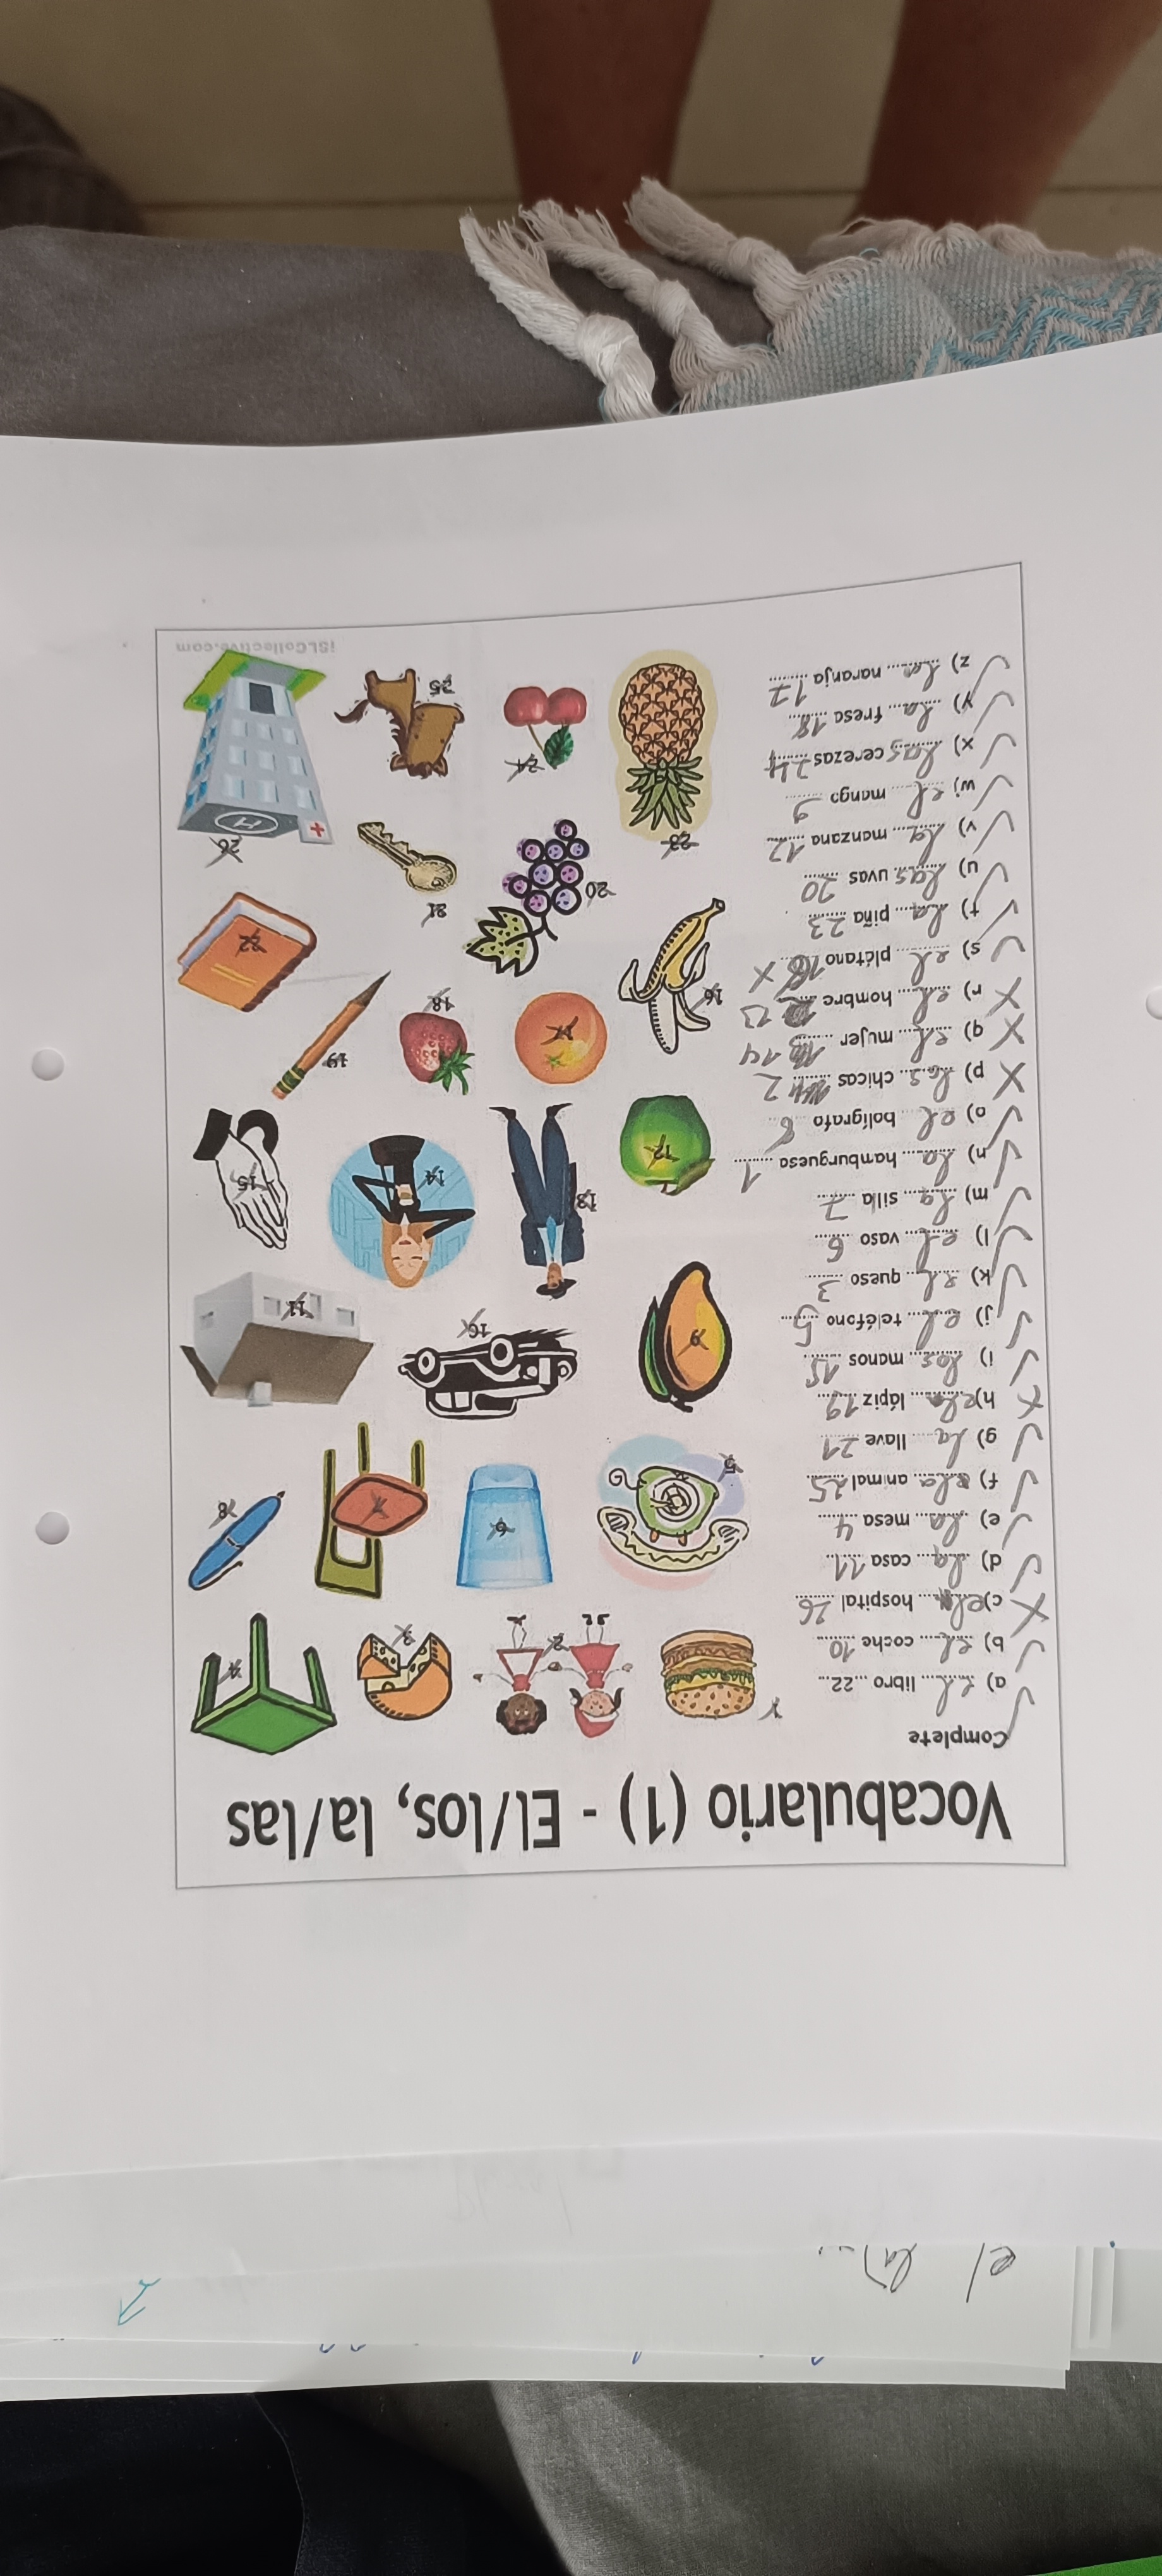 Vocabulario (1) - El/los, la/las
Complete
a) el libro ...22...
b) el coche 10
c) el hospital 26
d) la casa 11
e) la mesa 4
f) animal 25
g) la llave 21
h) el lápiz 19
i) las manos 15
j) el teléfono 5
k) el queso 3
l) el vaso 6
m) la silla 7
n) la hamburguesa 1
o) el bolígrafo 8
p) las chicas 2
q) el mujer 14
r) el hombre 13
s) el plátano 16
t) la piña 23
u) las uvas 20
v) la manzana 12
w) el mango 9
x) las cerezas 24
y) la fresa 18
z) la naranja 17
1
2
3
4
5
6
7
8
9
10
11
12
13
14
15
16
17
18
19
20
21
22
23
24
25
26
H
iSLCollective.com
el